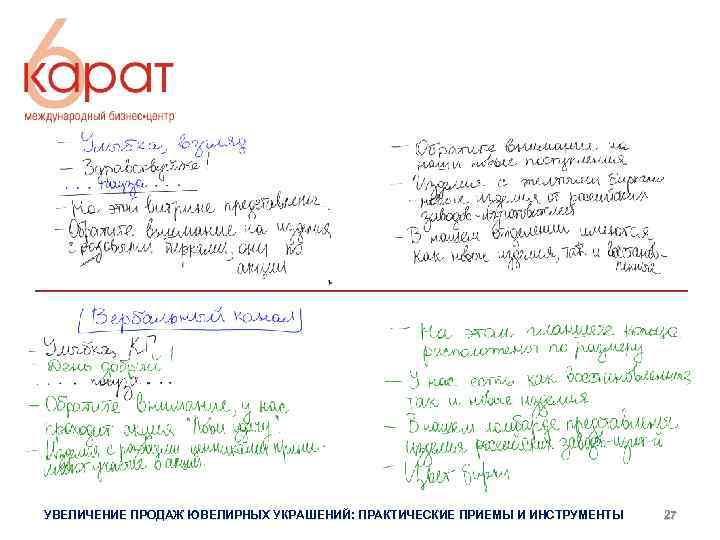 6 карат
международный бизнес•центр
– Улыбка, взгляд
– Здравствуйте!
... пауза ...
– На этой витрине представлены
– Обратите внимание на изделия
с розовыми перьями, они по
акции
– Обратите внимание на
наши новые поступления
– Изделия с желтыми бирками
– новые изделия от российских
заводов-изготовителей
– В нашем отделении имеются
как новые изделия, так и восстанов-
ленной
[Вербальный канал]
– Улыбка, КГ!
– День добрый
.... пауза ....
– Обратите внимание, у нас
проходит акция "Лови удачу"
– Изделия с ценниками прини-
мают участие в акции.
– На этом планшете кольца
расположены по размеру
– У нас есть как восстановленные
так и новые изделия
– В нашем ломбарде представлены
изделия российских завод-изгот-й
– Цвет бирки
УВЕЛИЧЕНИЕ ПРОДАЖ ЮВЕЛИРНЫХ УКРАШЕНИЙ: ПРАКТИЧЕСКИЕ ПРИЕМЫ И ИНСТРУМЕНТЫ
27